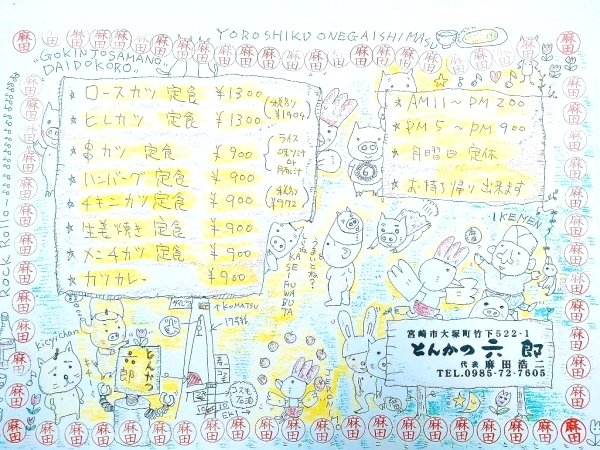 YOROSHIKU ONEGAISHIMASU
"GOKINJOSAMANO
DAIDOKORO"
ロースカツ 定食 ¥1300
ヒレカツ 定食 ¥1300
カツ 定食 ¥900
ハンバーグ 定食 ¥900
チキンカツ 定食 ¥900
生姜焼き 定食 ¥900
メンチカツ 定食 ¥900
カツカレー ¥900
ライス
味噌汁
or
豚汁
¥972
AM11〜PM2:00
PM5〜PM9:00
月曜日 定休
お持ち帰り出来ます
IKEMEN
Rock Rollo
Kicyi chan
KOMATSU
とんかつ
六郎
宮崎市大塚町竹下522-1
とんかつ 六郎
代表 麻田浩二
TEL.0985-72-7605
麻田